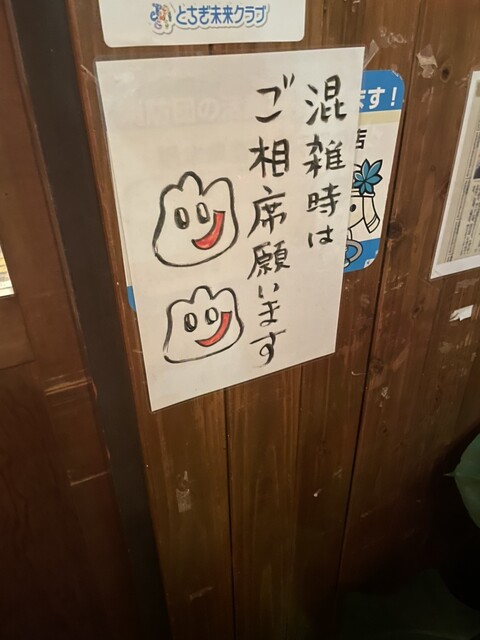 とちぎ未来クラブ
混雑時は
ご相席願います
ます！
店